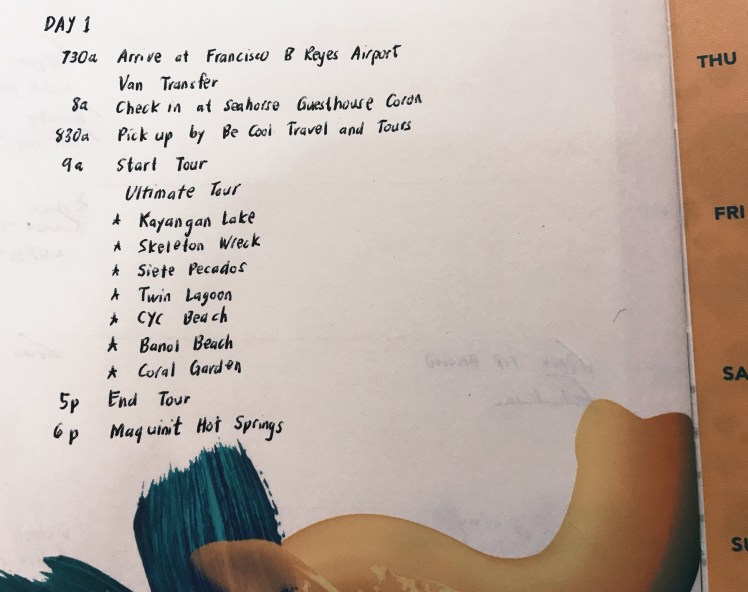 DAY 1
730a Arrive at Francisco B Reyes Airport
Van Transfer
8a Check in at Seahorse Guesthouse Coron
830a Pick up by Be Cool Travel and Tours
9a Start Tour
Ultimate Tour
★ Kayangan Lake
★ Skeleton Wreck
★ Siete Pecados
★ Twin Lagoon
★ CYC Beach
★ Banol Beach
★ Coral Garden
5p End Tour
6p Maquinit Hot Springs
THU
FRI
SA
SU